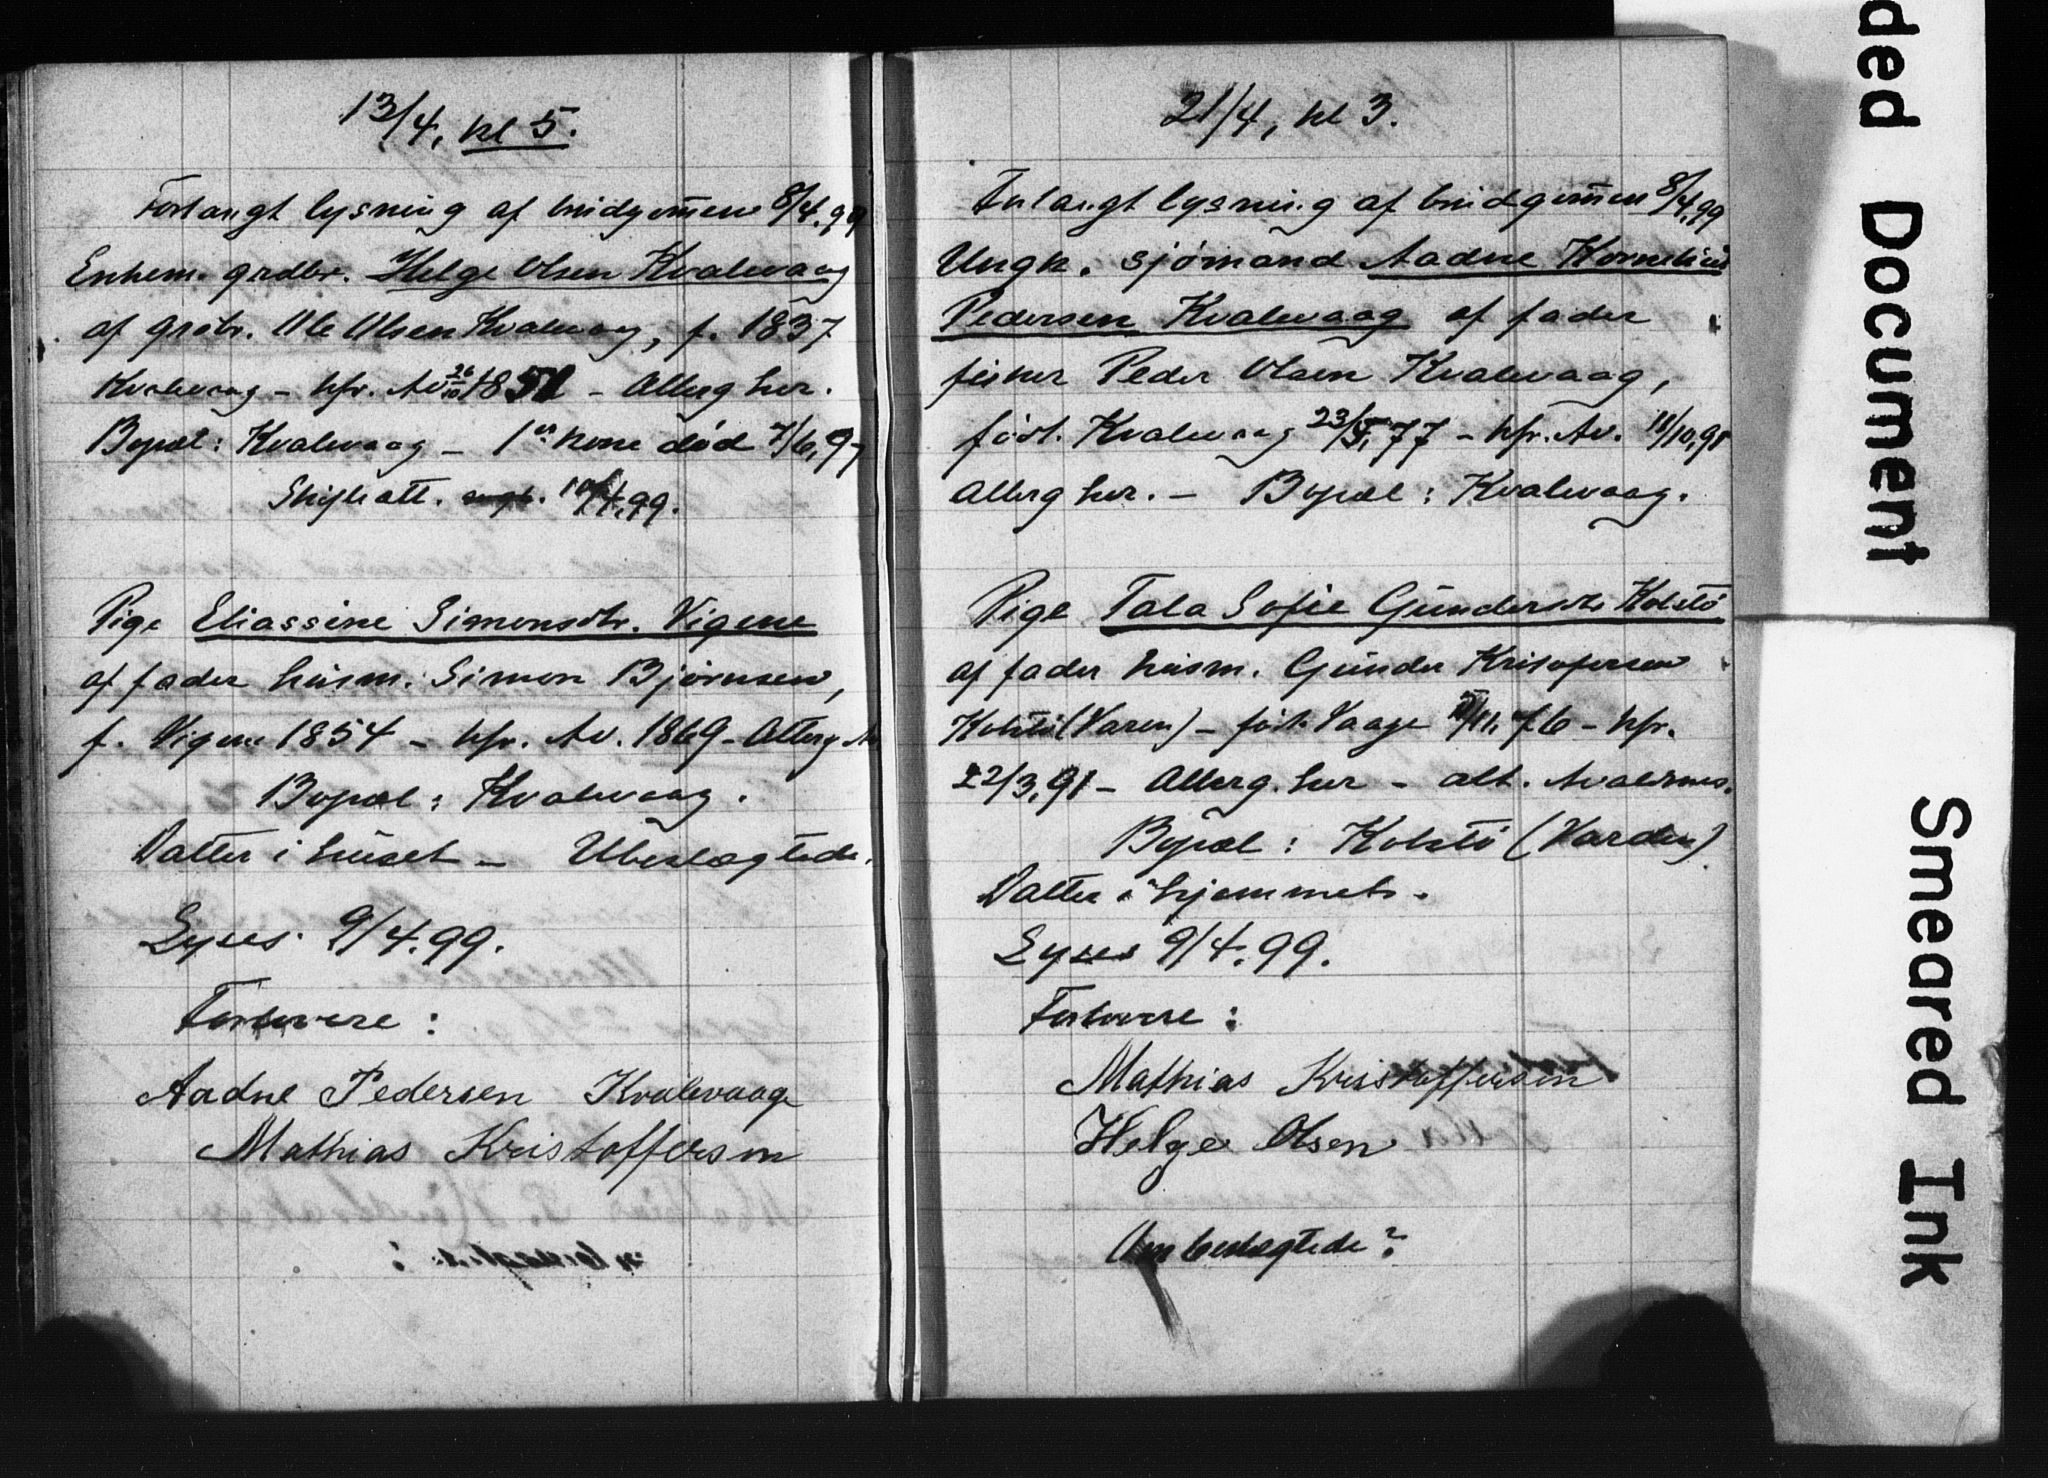 13/4, kl 5.
Forlangt lysning af brudgommen 8/4.99
Enkem. grdbr. Helge Olsen Kvalevaag
af grdbr. Ole Olsen Kvalevaag, f. 1837
Kvalevaag - kfr. Av 26/10 1851 - Altergher.
Bopæl: Kvalevaag - 1ste kone død 7/6, 97
Skifteatt. 10/4,99.
Pige Eliassine Simonsdtr. Vigene
af fader husm. Simon Bjørnsen,
f. Vigene 1854 - kfr. Av. 1869 - Alterg
Bopæl: Kvalevaag.
Datter i huset - Ubeslægtede.
Lyses 9/4.99.
Forlovere:
Aadne Pedersen Kvalevaage
Mathias Kristoffersen
21/4, kl 3.
Forlangt lysning af brudgommen 8/4,99
Ungk. sjømand Aadne Kornelius
Pedersen Kvalevaag af fader
fisker Peder Olsen Kvalevaag,
født. Kvalevaag 23/5,77 - kfr. Av. 18/10,91
Alterg her. - Bopæl: Kvalevaag.
Pige Tala Sofie Gundersdtr Kolstø
af fader husm. Gunder Kristofersen
Kolstø (Varen) - født Vaage /11,76 - kfr.
22/3,91 - Alterg. her - att. Avaldsnes.
Bopæl: Kolstø (Varden)
Datter i hjemmet.
Lyses 9/4.99.
Forlovere:
Mathias Kristoffersen
Helge Olsen
Om beslægtede?
ded Document
Smeared Ink